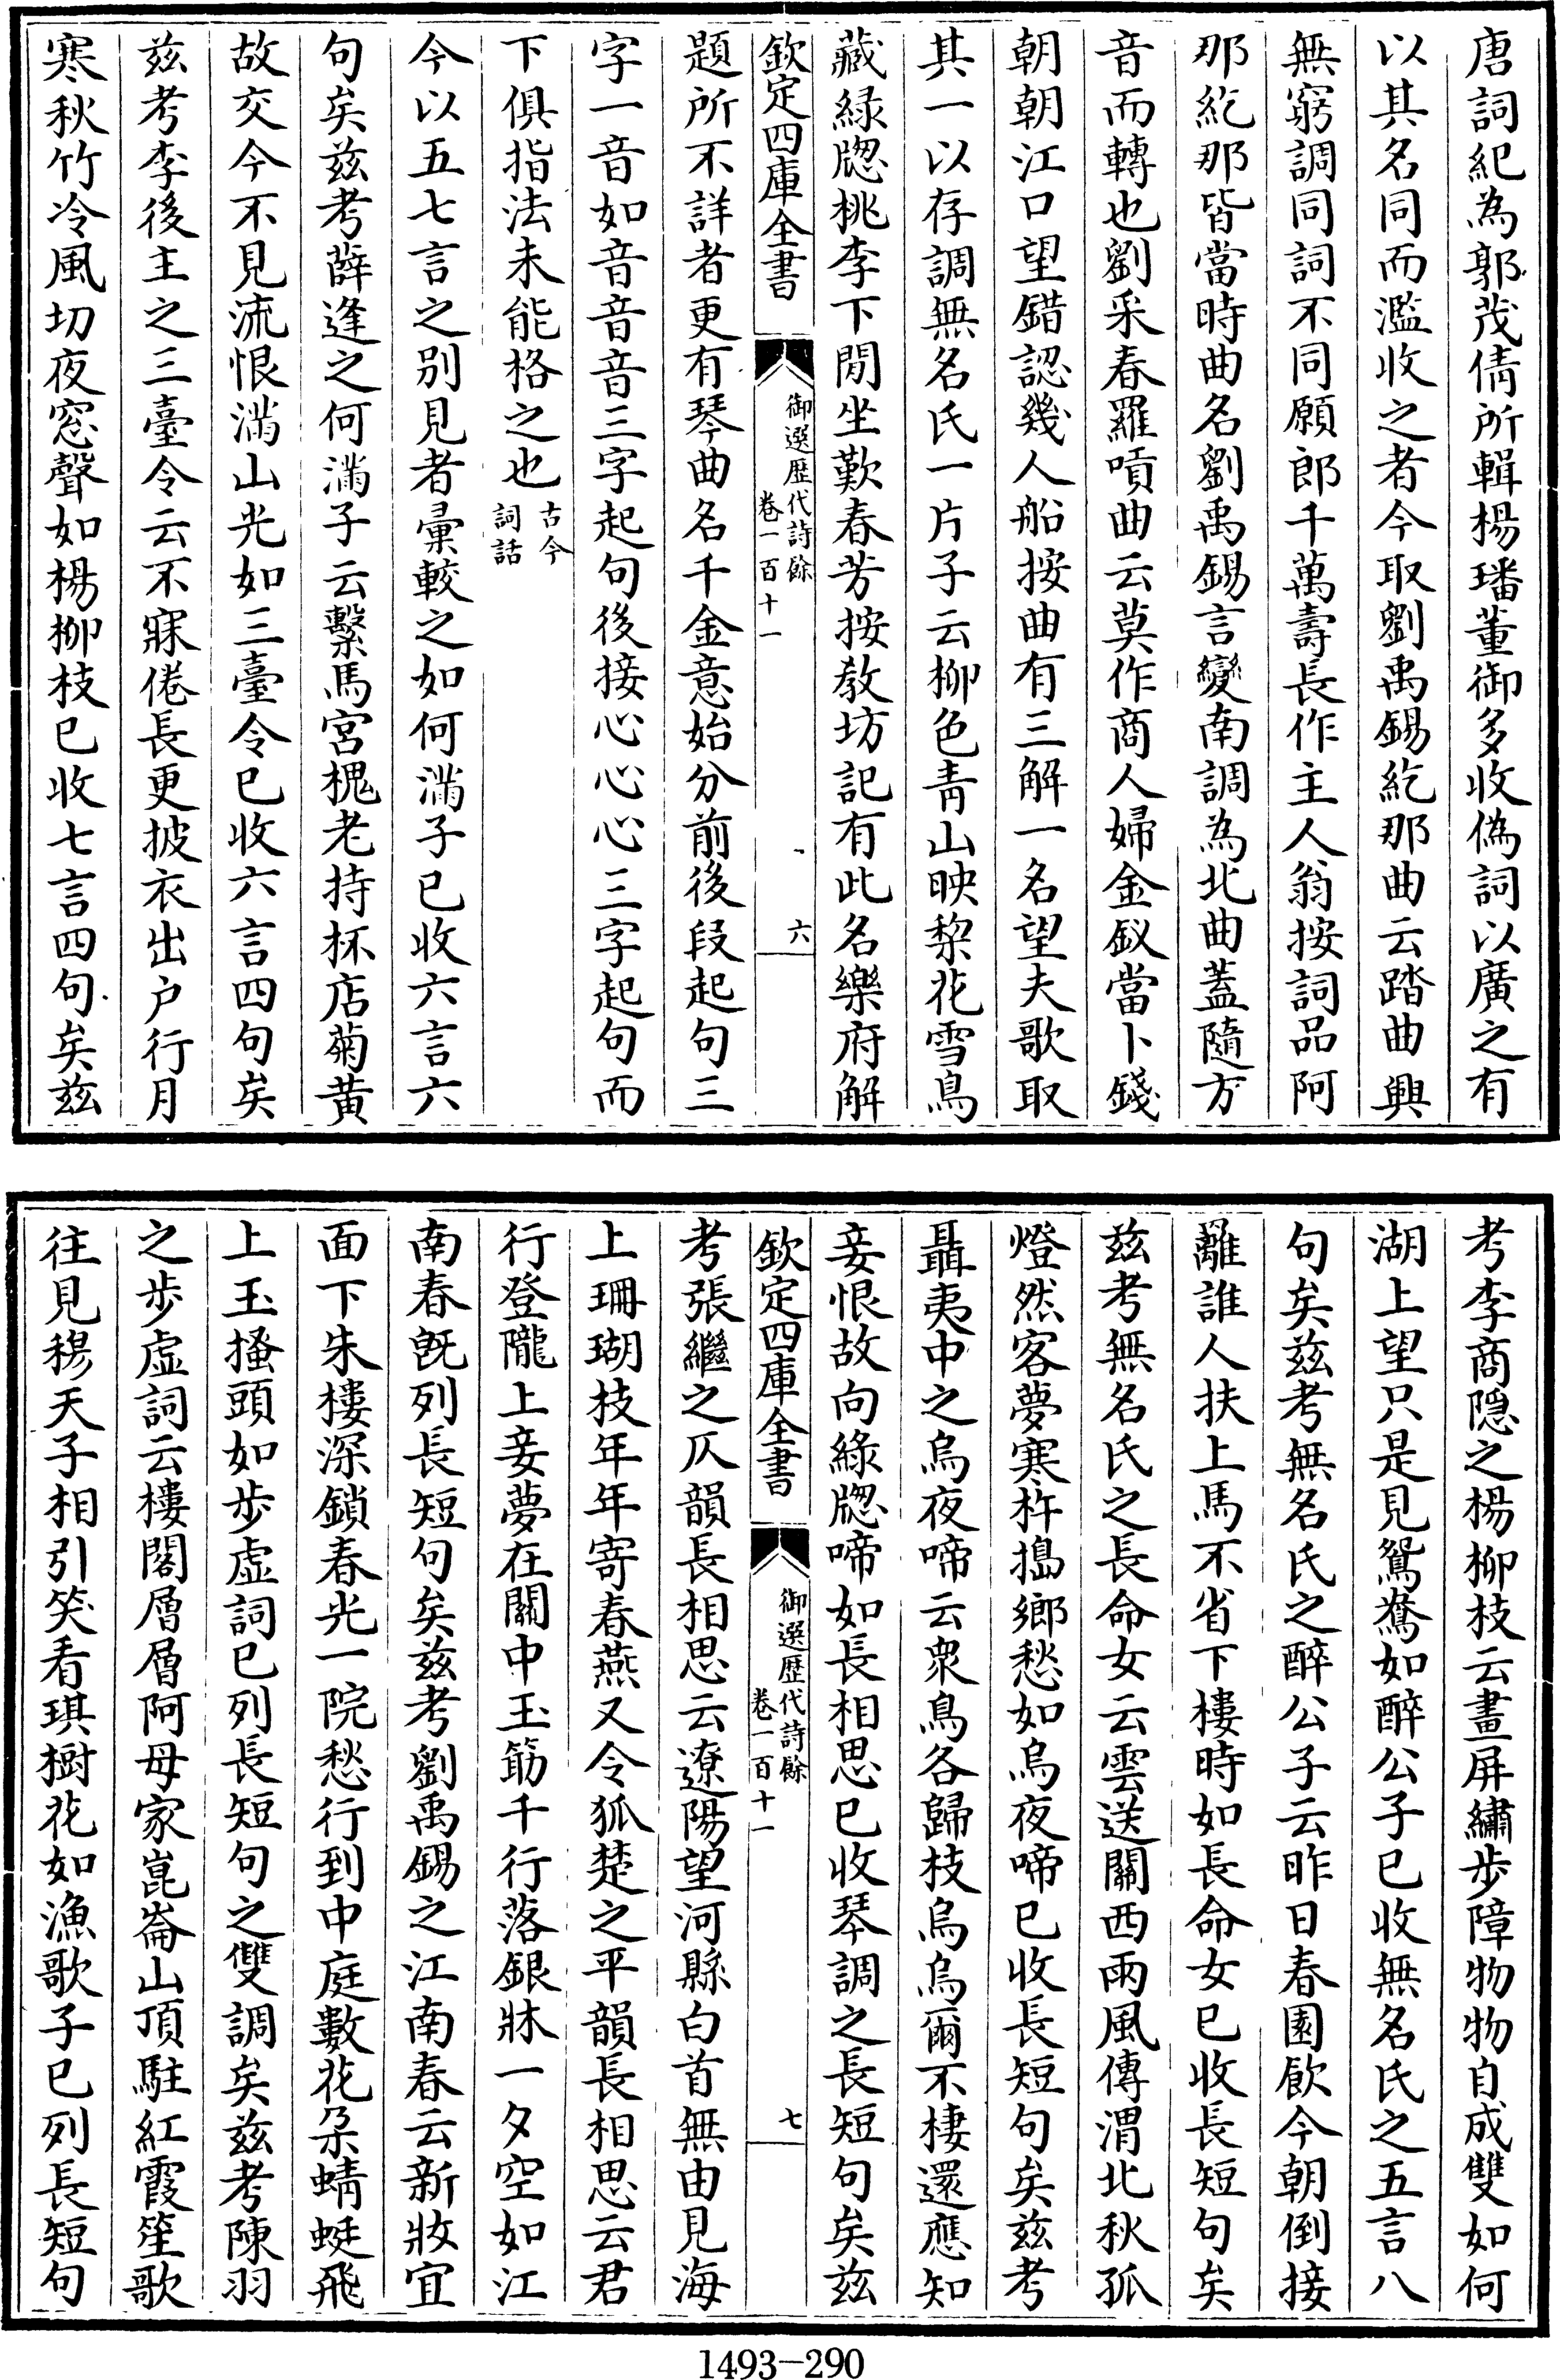 唐詞紀為郭茂倩所輯楊璠董御多收偽詞以廣之有
以其名同而濫收之者今取劉禹錫紇那曲云踏曲興
無窮調同詞不同願郎千萬壽長作主人翁按詞品阿
那紇那皆當時曲名劉禹錫言變南調為北曲蓋隨方
音而轉也劉采春羅嗊曲云莫作商人婦金釵當卜錢
朝朝江口望錯認幾人船按曲有三解一名望夫歌取
其一以存調無名氏一片子云柳色青山映棃花雪鳥
藏綠牕桃李下閒坐歎春芳按教坊記有此名樂府解
欽定四庫全書
御選歷代詩餘
卷一百十一
六
題所不詳者更有琴曲名千金意始分前後段起句三
字一音如音音音三字起句後接心心心三字起句而
下俱指法未能格之也古今
詞話
今以五七言之別見者彚較之如何滿子已收六言六
句矣茲考薛逢之何滿子云繫馬宮槐老持抔店菊黃
故交今不見流恨滿山光如三臺令已收六言四句矣
茲考李後主之三臺令云不寐倦長更披衣出户行月
寒秋竹冷風切夜窓聲如楊柳枝已收七言四句矣茲
考李商隱之楊柳枝云畫屏繡步障物物自成雙如何
湖上望只是見鴛鴦如醉公子已收無名氏之五言八
句矣茲考無名氏之醉公子云昨日春園飲今朝倒接
䍦誰人扶上馬不省下樓時如長命女已收長短句矣
茲考無名氏之長命女云雲送關西雨風傳渭北秋孤
燈然客夢寒杵搗鄉愁如烏夜啼已收長短句矣茲考
聶夷中之烏夜啼云衆鳥各歸枝烏烏爾不棲還應知
妾恨故向綠牕啼如長相思已收琴調之長短句矣茲
欽定四庫全書
御選歷代詩餘
卷一百十一
七
考張繼之仄韻長相思云遼陽望河縣白首無由見海
上珊瑚枝年年寄春燕又令狐楚之平韻長相思云君
行登隴上妾夢在關中玉筯千行落銀牀一夕空如江
南春旣列長短句矣茲考劉禹錫之江南春云新妝宜
面下朱樓深鎖春光一院愁行到中庭數花朵蜻蜓飛
上玉搔頭如步虛詞已列長短句之雙調矣茲考陳羽
之步虛詞云樓閣層層阿母家崑崙山頂駐紅霞笙歌
往見穆天子相引笑看琪樹花如漁歌子已列長短句
1493—290